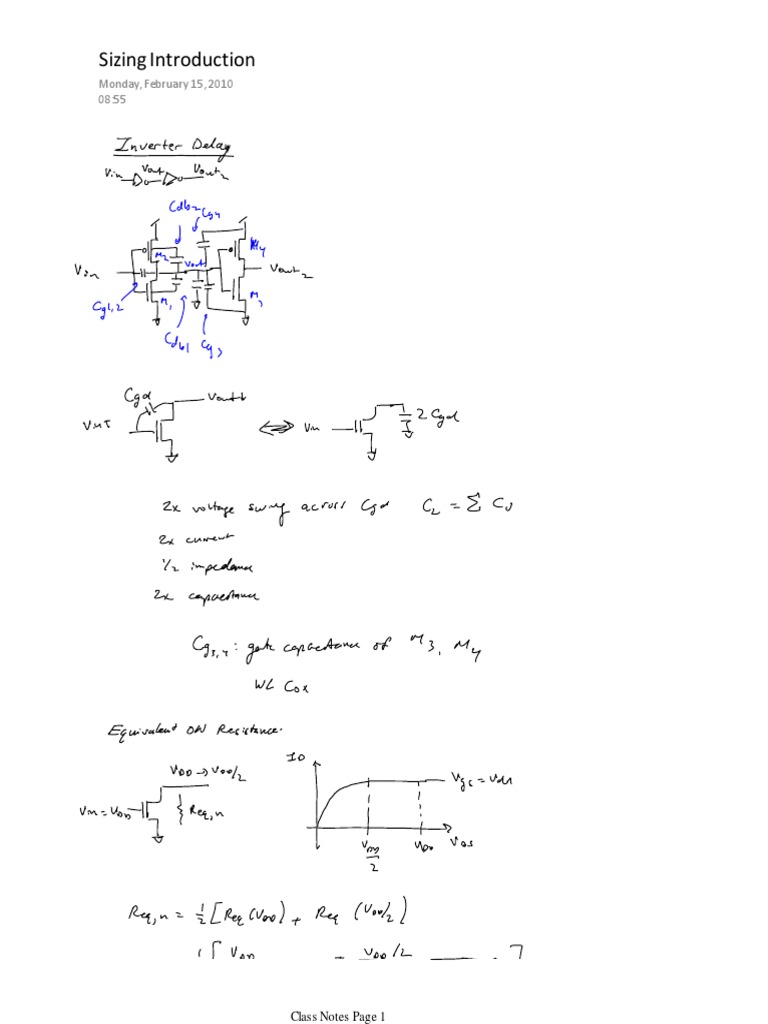 Sizing Introduction
Monday, February 15, 2010
08:55
Inverter Delay
Vin Vout Vout2
Cdb2 Cg4
M2 Vout M4
Vin Vout2
Cg1,2 M1 M3
Cdb1 Cg3
Cgd Vout
Vin 2 Cgd
2x voltage swing across Cgd CL = Σ CJ
2x current
1/2 impedance
2x capacitance
Cg3,4: gate capacitance of M3, M4
WL Cox
Equivalent ON Resistance:
VDD → VDD/2 ID
Vin = VDD Req,n
VDD/2 VDD VDS
Req,n = 1/2 [Req (VDD) + Req (VDD/2)]
Class Notes Page 1